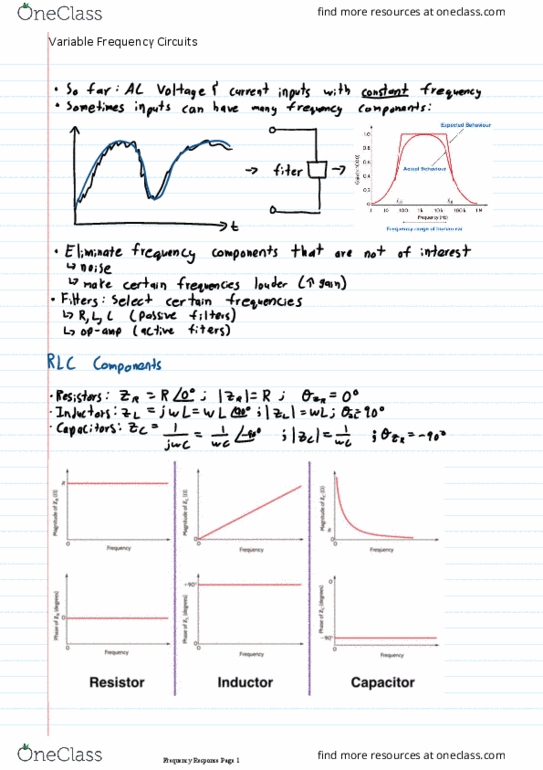 OneClass
find more resources at oneclass.com
Variable Frequency Circuits
• So far: AC Voltage & current inputs with constant frequency
• Sometimes inputs can have many frequency components:
t
→ fiter →
Expected Behaviour
Actual Behaviour
1.0
0.8
0.6
0.4
0.2
0
Frequency (Hz)
• Eliminate frequency components that are not of interest
↳ noise
↳ make certain frequencies louder (↑ gain)
• Filters: Select certain frequencies
↳ R, L, C (passive filters)
↳ op-amp (active fiters)
RLC Components
• Resistors: Z_R = R∠0° ; |Z_R| = R ; θ_ZR = 0°
• Inductors: Z_L = jωL = ωL∠90° ; |Z_L| = ωL ; θ_ZL = 90°
• Capacitors: Z_C = 1/jωC = 1/ωC ∠-90° ; |Z_C| = 1/ωC ; θ_ZR = -90°
Magnitude of Z_R (Ω)
R
0
Frequency
Magnitude of Z_L (Ω)
0
0
Frequency
Magnitude of Z_C (Ω)
0
Frequency
Phase of Z_R (degrees)
0
0
Frequency
Phase of Z_L (degrees)
+90°
0
Frequency
Phase of Z_C (degrees)
0
-90°
0
Frequency
Resistor
Inductor
Capacitor
OneClass
Frequency Response Page 1
find more resources at oneclass.com